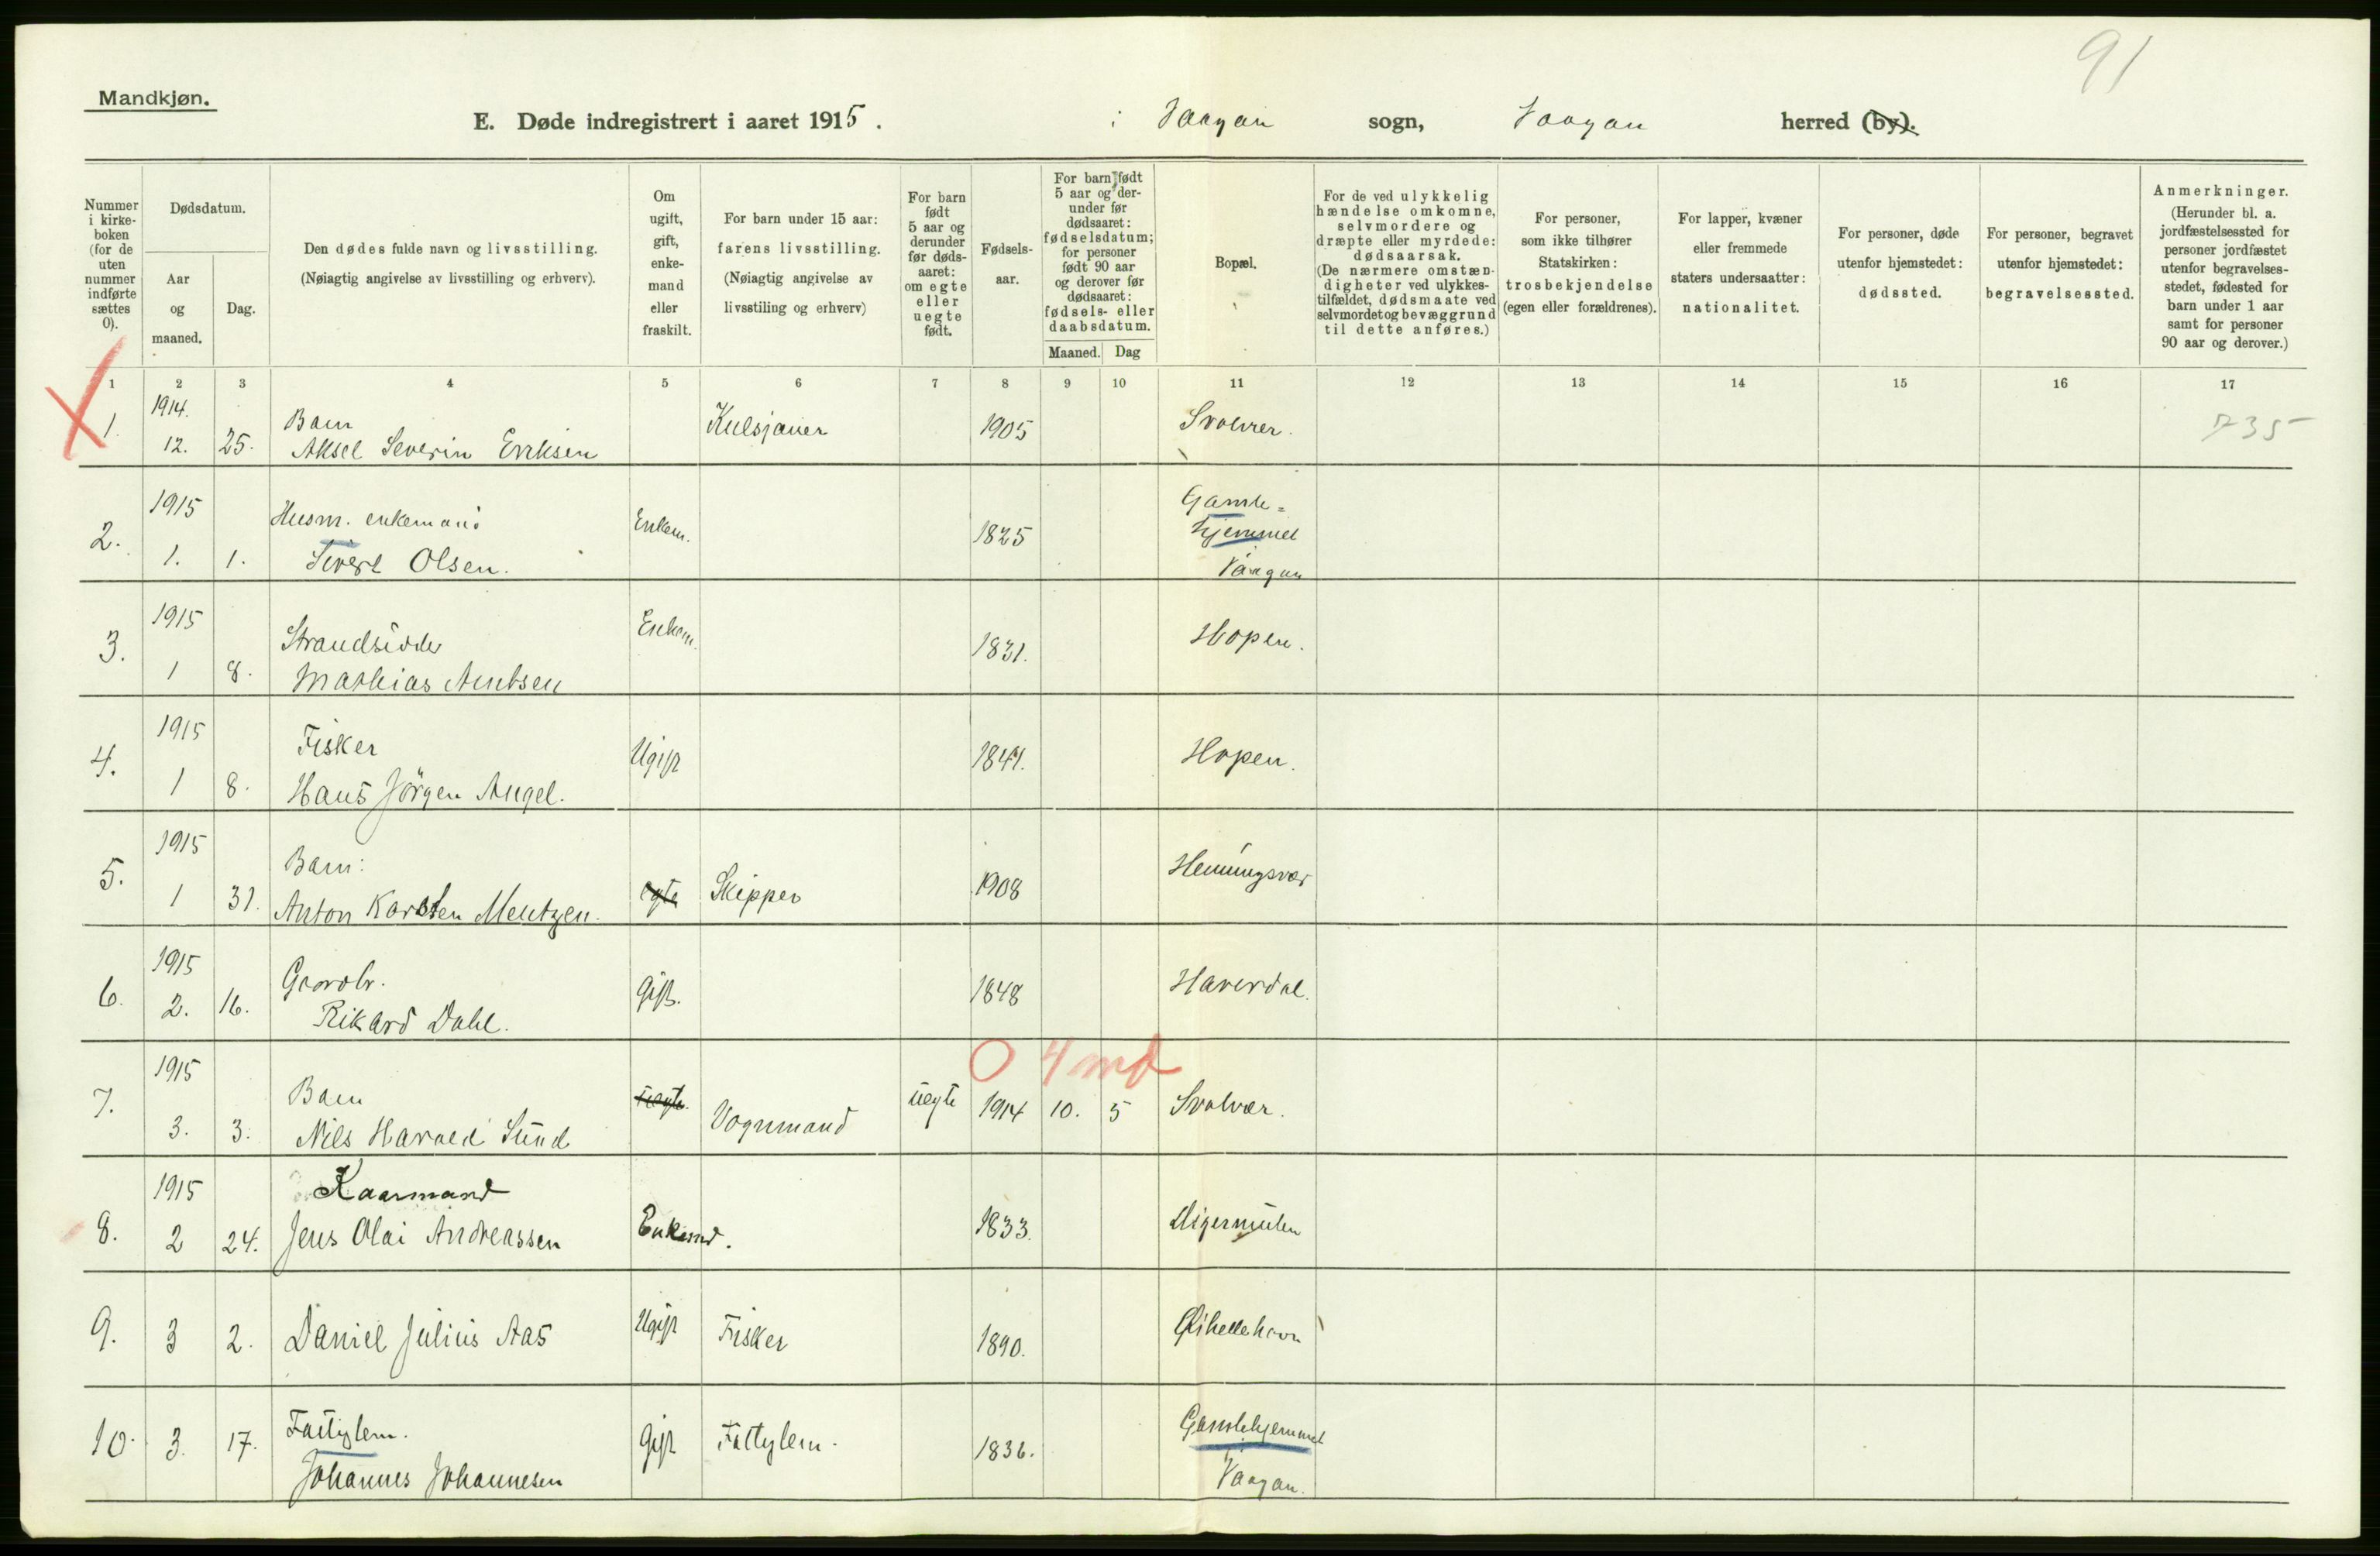 91
Mandkjøn.
E. Døde indregistrert i aaret 1915. i Vaagan sogn, Vaagan herred (by).
Nummer i kirkeboken (for de uten nummer indførte sættes 0).
Dødsdatum.
Aar og maaned.
Dag.
Den dødes fulde navn og livsstilling.
(Nøiagtig angivelse av livsstilling og erhverv).
Om ugift, gift, enkemand eller fraskilt.
For barn under 15 aar: farens livsstilling. (Nøiagtig angivelse av livsstiling og erhverv)
For barn født 5 aar og derunder før dødsaaret: om egte eller uegte født.
Fødselsaar.
For barn født 5 aar og derunder før dødsaaret: fødselsdatum; for personer født 90 aar og derover før dødsaaret: fødsels- eller daabsdatum.
Maaned. Dag
Bopæl.
For de ved ulykkelig hændelse omkomne, selvmordere og dræpte eller myrdede: dødsaarsak. (De nærmere omstændigheter ved ulykkestilfældet, dødsmaate ved selvmordet og bevæggrund til dette anføres.)
For personer, som ikke tilhører Statskirken: trosbekjendelse (egen eller forældrenes).
For lapper, kvæner eller fremmede staters undersaatter: nationalitet.
For personer, døde utenfor hjemstedet: dødssted.
For personer, begravet utenfor hjemstedet: begravelsessted.
Anmerkninger. (Herunder bl. a. jordfæstelsessted for personer jordfæstet utenfor begravelsesstedet, fødested for barn under 1 aar samt for personer 90 aar og derover.)
1 2 3 4 5 6 7 8 9 10 11 12 13 14 15 16 17
1. 1914. 12. 25. Barn Aksel Severin Eriksen Kulsjauer 1905 Svolvær. 735
2. 1915 1. 1. Husm. enkemand Sivert Olsen. Enkem. 1825 Gamle=hjemmet Vaagan
3. 1915 1 8. Strandsidder Mathias Arntsen Enkem. 1831. Hopen.
4. 1915 1 8. Fisker Hans Jörgen Angel. Ugift 1841. Hopen.
5. 1915 1 31. Barn: Anton Karsten Mentzen. egte Skipper 1908 Henningsvær
6. 1915 2. 16. Gaardbr. Rikard Dahl. Gift. 1848 Haverdal.
0 4 md
7. 1915 3. 3. Barn Nils Harald Sund uegte. Vognmand uegte 1914 10. 5 Svolvær.
8. 1915 2 24. Kaarmand Jens Olai Andreassen Enkemd. 1833. Digermulen
9. 3 2. Daniel Julius Aas Ugift Fisker 1890. Øihellehavn
10. 3. 17. Fattiglem. Johannes Johannesen Gift Fattiglem. 1836. Gamlehjemmet Vaagan.